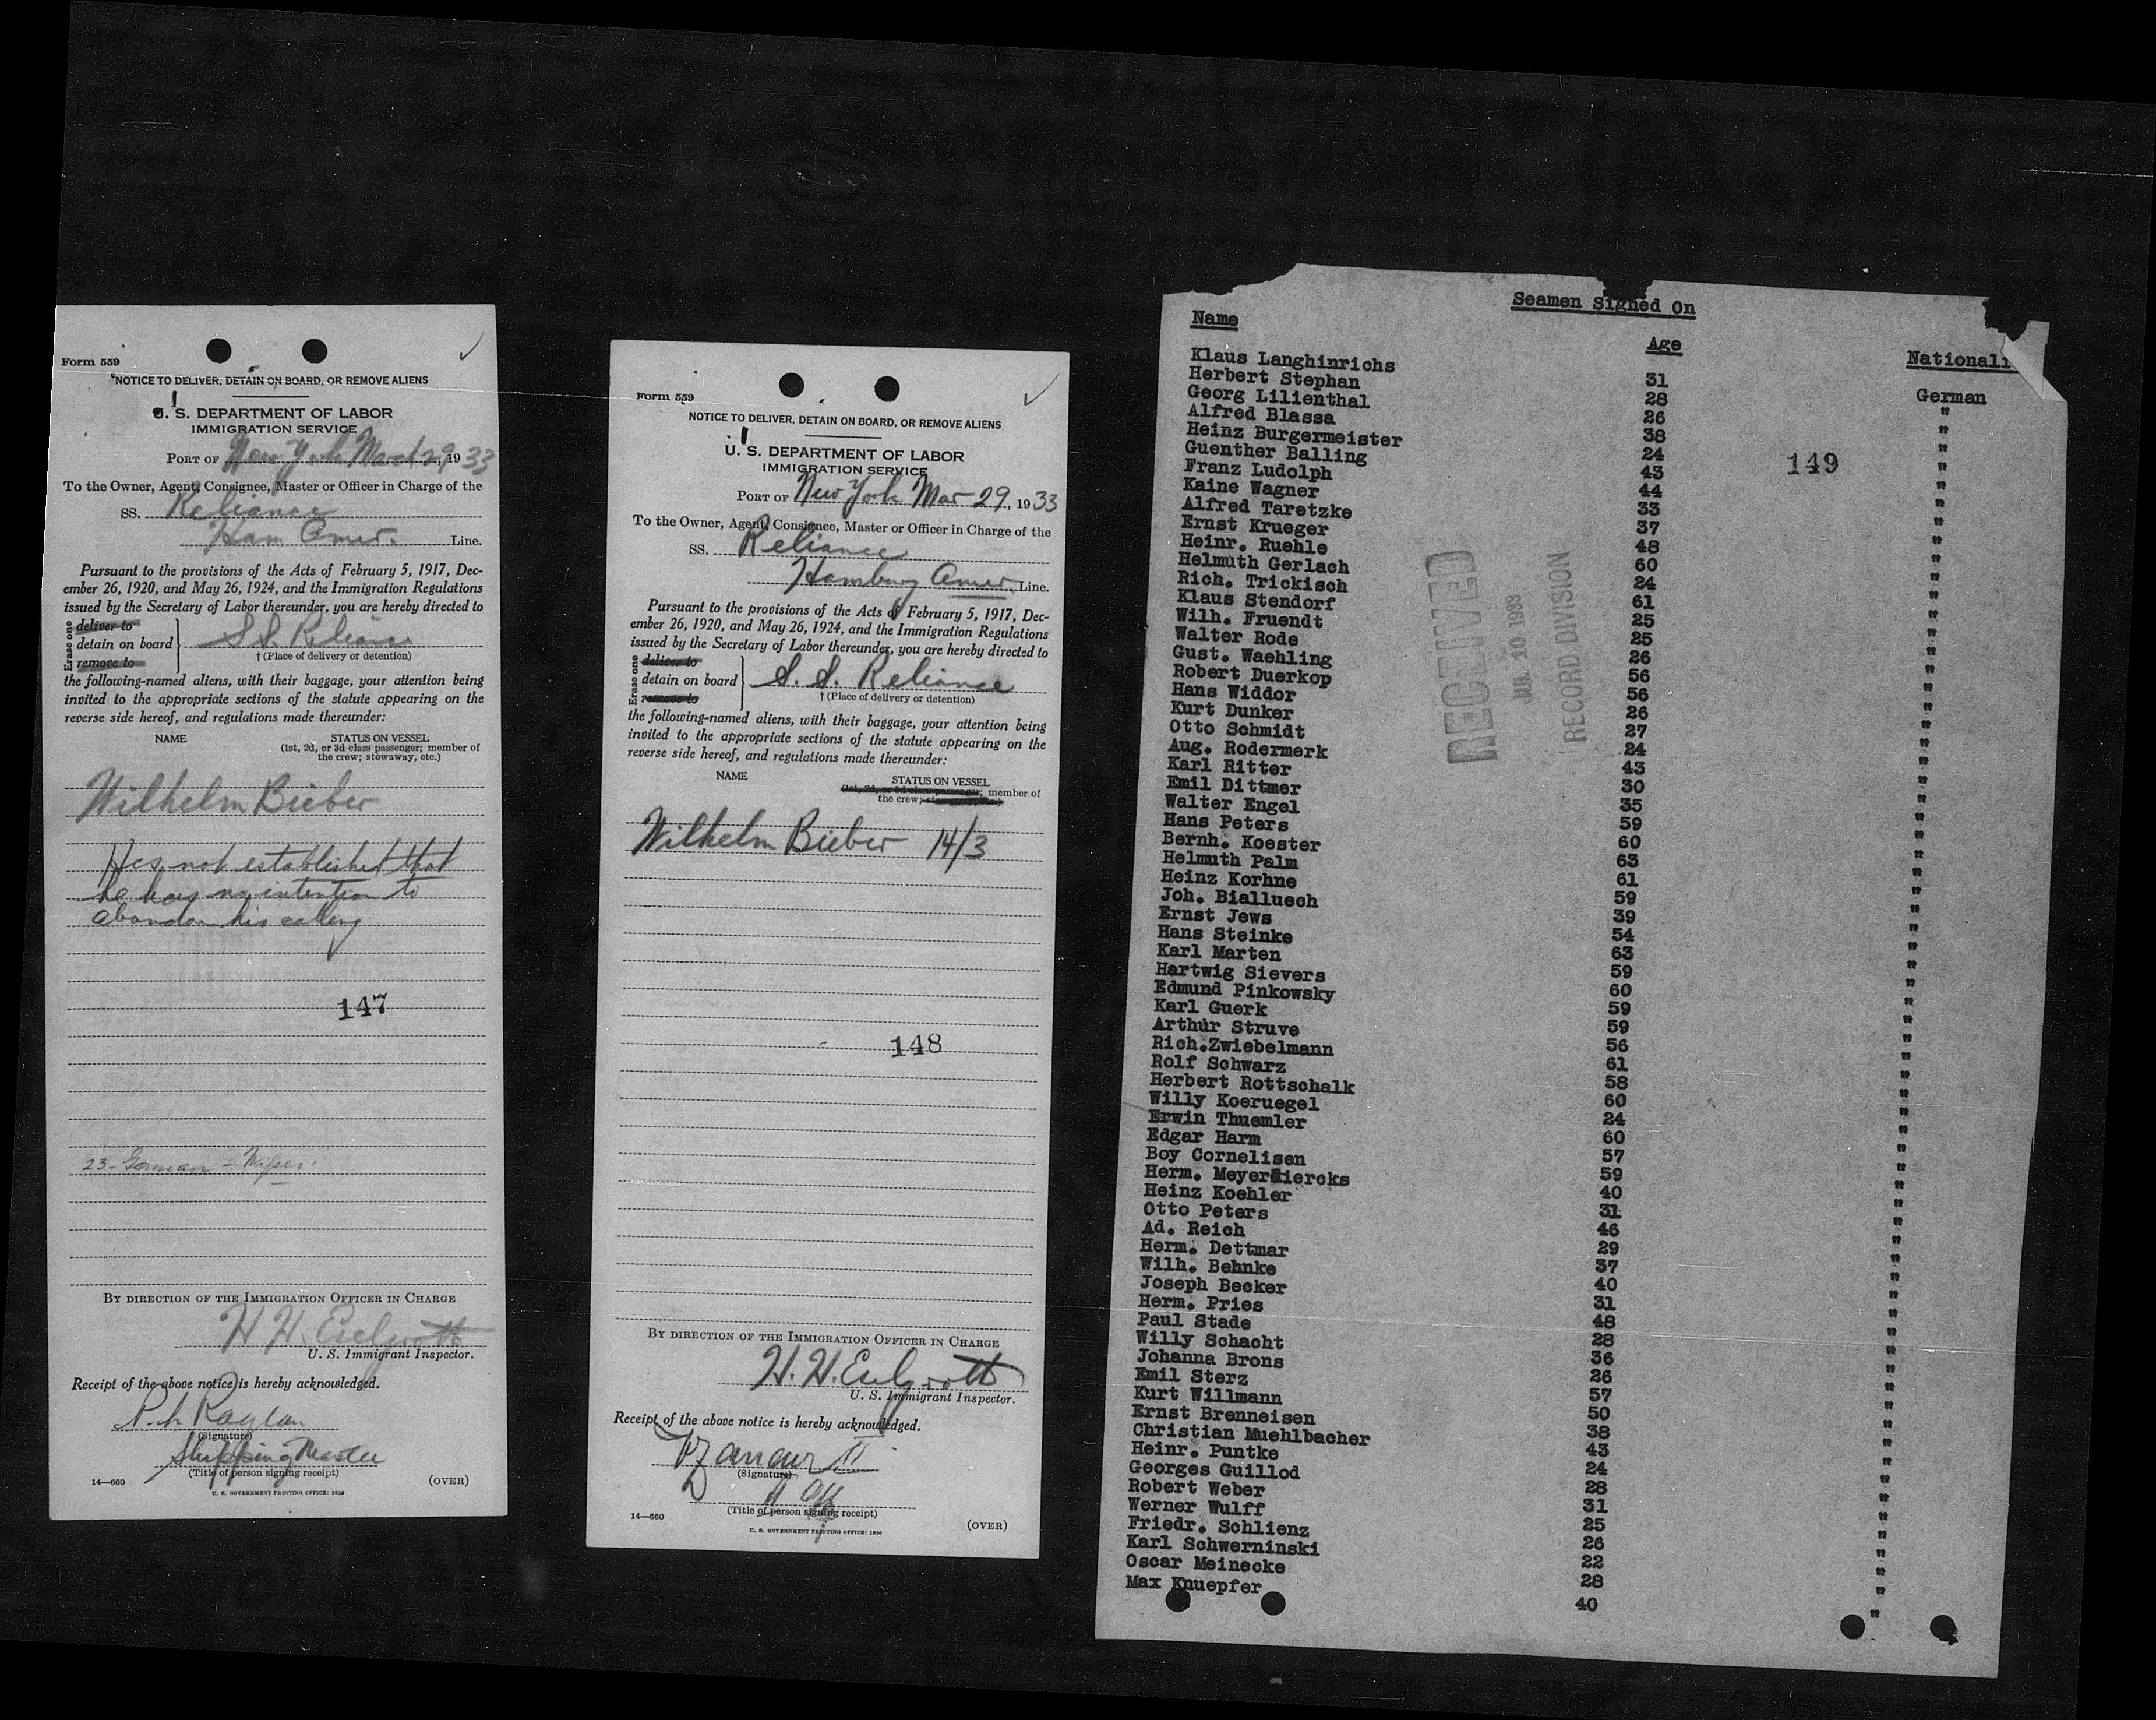 Form 559
NOTICE TO DELIVER, DETAIN ON BOARD, OR REMOVE ALIENS
U. S. DEPARTMENT OF LABOR
IMMIGRATION SERVICE
PORT OF New York March 29, 1933
To the Owner, Agent, Consignee, Master or Officer in Charge of the
SS. Reliance
Ham Amer. Line.
Pursuant to the provisions of the Acts of February 5, 1917, Dec-
ember 26, 1920, and May 26, 1924, and the Immigration Regulations
issued by the Secretary of Labor thereunder, you are hereby directed to
Erase one
deliver to
detain on board S.S. Reliance
remove to
† (Place of delivery or detention)
the following-named aliens, with their baggage, your attention being
invited to the appropriate sections of the statute appearing on the
reverse side hereof, and regulations made thereunder:
NAME STATUS ON VESSEL
(1st, 2d, or 3d class passenger; member of
the crew; stowaway, etc.)
Wilhelm Bieber
Has not established that
he has no intention to
abandon his calling
147
23 - German - Wiper.
BY DIRECTION OF THE IMMIGRATION OFFICER IN CHARGE
U. S. Immigrant Inspector.
Receipt of the above notice is hereby acknowledged.
(Signature)
Shipping Master
(Title of person signing receipt)
14—660 (OVER)
U. S. GOVERNMENT PRINTING OFFICE: 1930
Form 559
NOTICE TO DELIVER, DETAIN ON BOARD, OR REMOVE ALIENS
U. S. DEPARTMENT OF LABOR
IMMIGRATION SERVICE
PORT OF New York Mar 29, 1933
To the Owner, Agent, Consignee, Master or Officer in Charge of the
SS. Reliance
Hamburg Amer. Line.
Pursuant to the provisions of the Acts of February 5, 1917, Dec-
ember 26, 1920, and May 26, 1924, and the Immigration Regulations
issued by the Secretary of Labor thereunder, you are hereby directed to
Erase one
deliver to
detain on board S. S. Reliance
remove to
† (Place of delivery or detention)
the following-named aliens, with their baggage, your attention being
invited to the appropriate sections of the statute appearing on the
reverse side hereof, and regulations made thereunder:
NAME STATUS ON VESSEL
(1st, 2d, or 3d class passenger; member of
the crew;
Wilhelm Bieber 14/3
148
BY DIRECTION OF THE IMMIGRATION OFFICER IN CHARGE
U. S. Immigrant Inspector.
Receipt of the above notice is hereby acknowledged.
(Signature)
(Title of person signing receipt)
14—660 (OVER)
U. S. GOVERNMENT PRINTING OFFICE: 1930
Seamen Signed On
Name Age Nationali
Klaus Langhinrichs 31 German
Herbert Stephan 28 "
Georg Lilienthal 26 "
Alfred Blassa 38 "
Heinz Burgermeister 24 "
Guenther Balling 43 "
Franz Ludolph 44 "
Kaine Wagner 33 "
Alfred Taretzke 37 "
Ernst Krueger 48 "
Heinr. Ruehle 60 "
Helmuth Gerlach 24 "
Rich. Trickisch 61 "
Klaus Stendorf 25 "
Wilh. Fruendt 25 "
Walter Rode 26 "
Gust. Waehling 56 "
Robert Duerkop 56 "
Hans Widdor 26 "
Kurt Dunker 27 "
Otto Schmidt 24 "
Aug. Rodermerk 43 "
Karl Ritter 30 "
Emil Dittmer 35 "
Walter Engel 59 "
Hans Peters 60 "
Bernh. Koester 63 "
Helmuth Palm 61 "
Heinz Korhne 59 "
Joh. Bialluech 39 "
Ernst Jews 54 "
Hans Steinke 63 "
Karl Marten 59 "
Hartwig Sievers 60 "
Edmund Pinkowsky 59 "
Karl Guerk 59 "
Arthur Struve 56 "
Rich.Zwiebelmann 61 "
Rolf Schwarz 58 "
Herbert Rottschalk 60 "
Willy Koeruegel 24 "
Erwin Thuemler 60 "
Edgar Harm 57 "
Boy Cornelisen 59 "
Herm. Meyerdiercks 40 "
Heinz Koehler 31 "
Otto Peters 46 "
Ad. Reich 29 "
Herm. Dettmar 37 "
Wilh. Behnke 40 "
Joseph Becker 31 "
Herm. Pries 48 "
Paul Stade 28 "
Willy Schacht 36 "
Johanna Brons 26 "
Emil Sterz 57 "
Kurt Willmann 50 "
Ernst Brenneisen 38 "
Christian Muehlbacher 43 "
Heinr. Puntke 24 "
Georges Guillod 28 "
Robert Weber 31 "
Werner Wulff 25 "
Friedr. Schlienz 26 "
Karl Schwerninski 22 "
Oscar Meinecke 28 "
Max Knuepfer 40 "
149
RECEIVED
JUL 10 1933
RECORD DIVISION